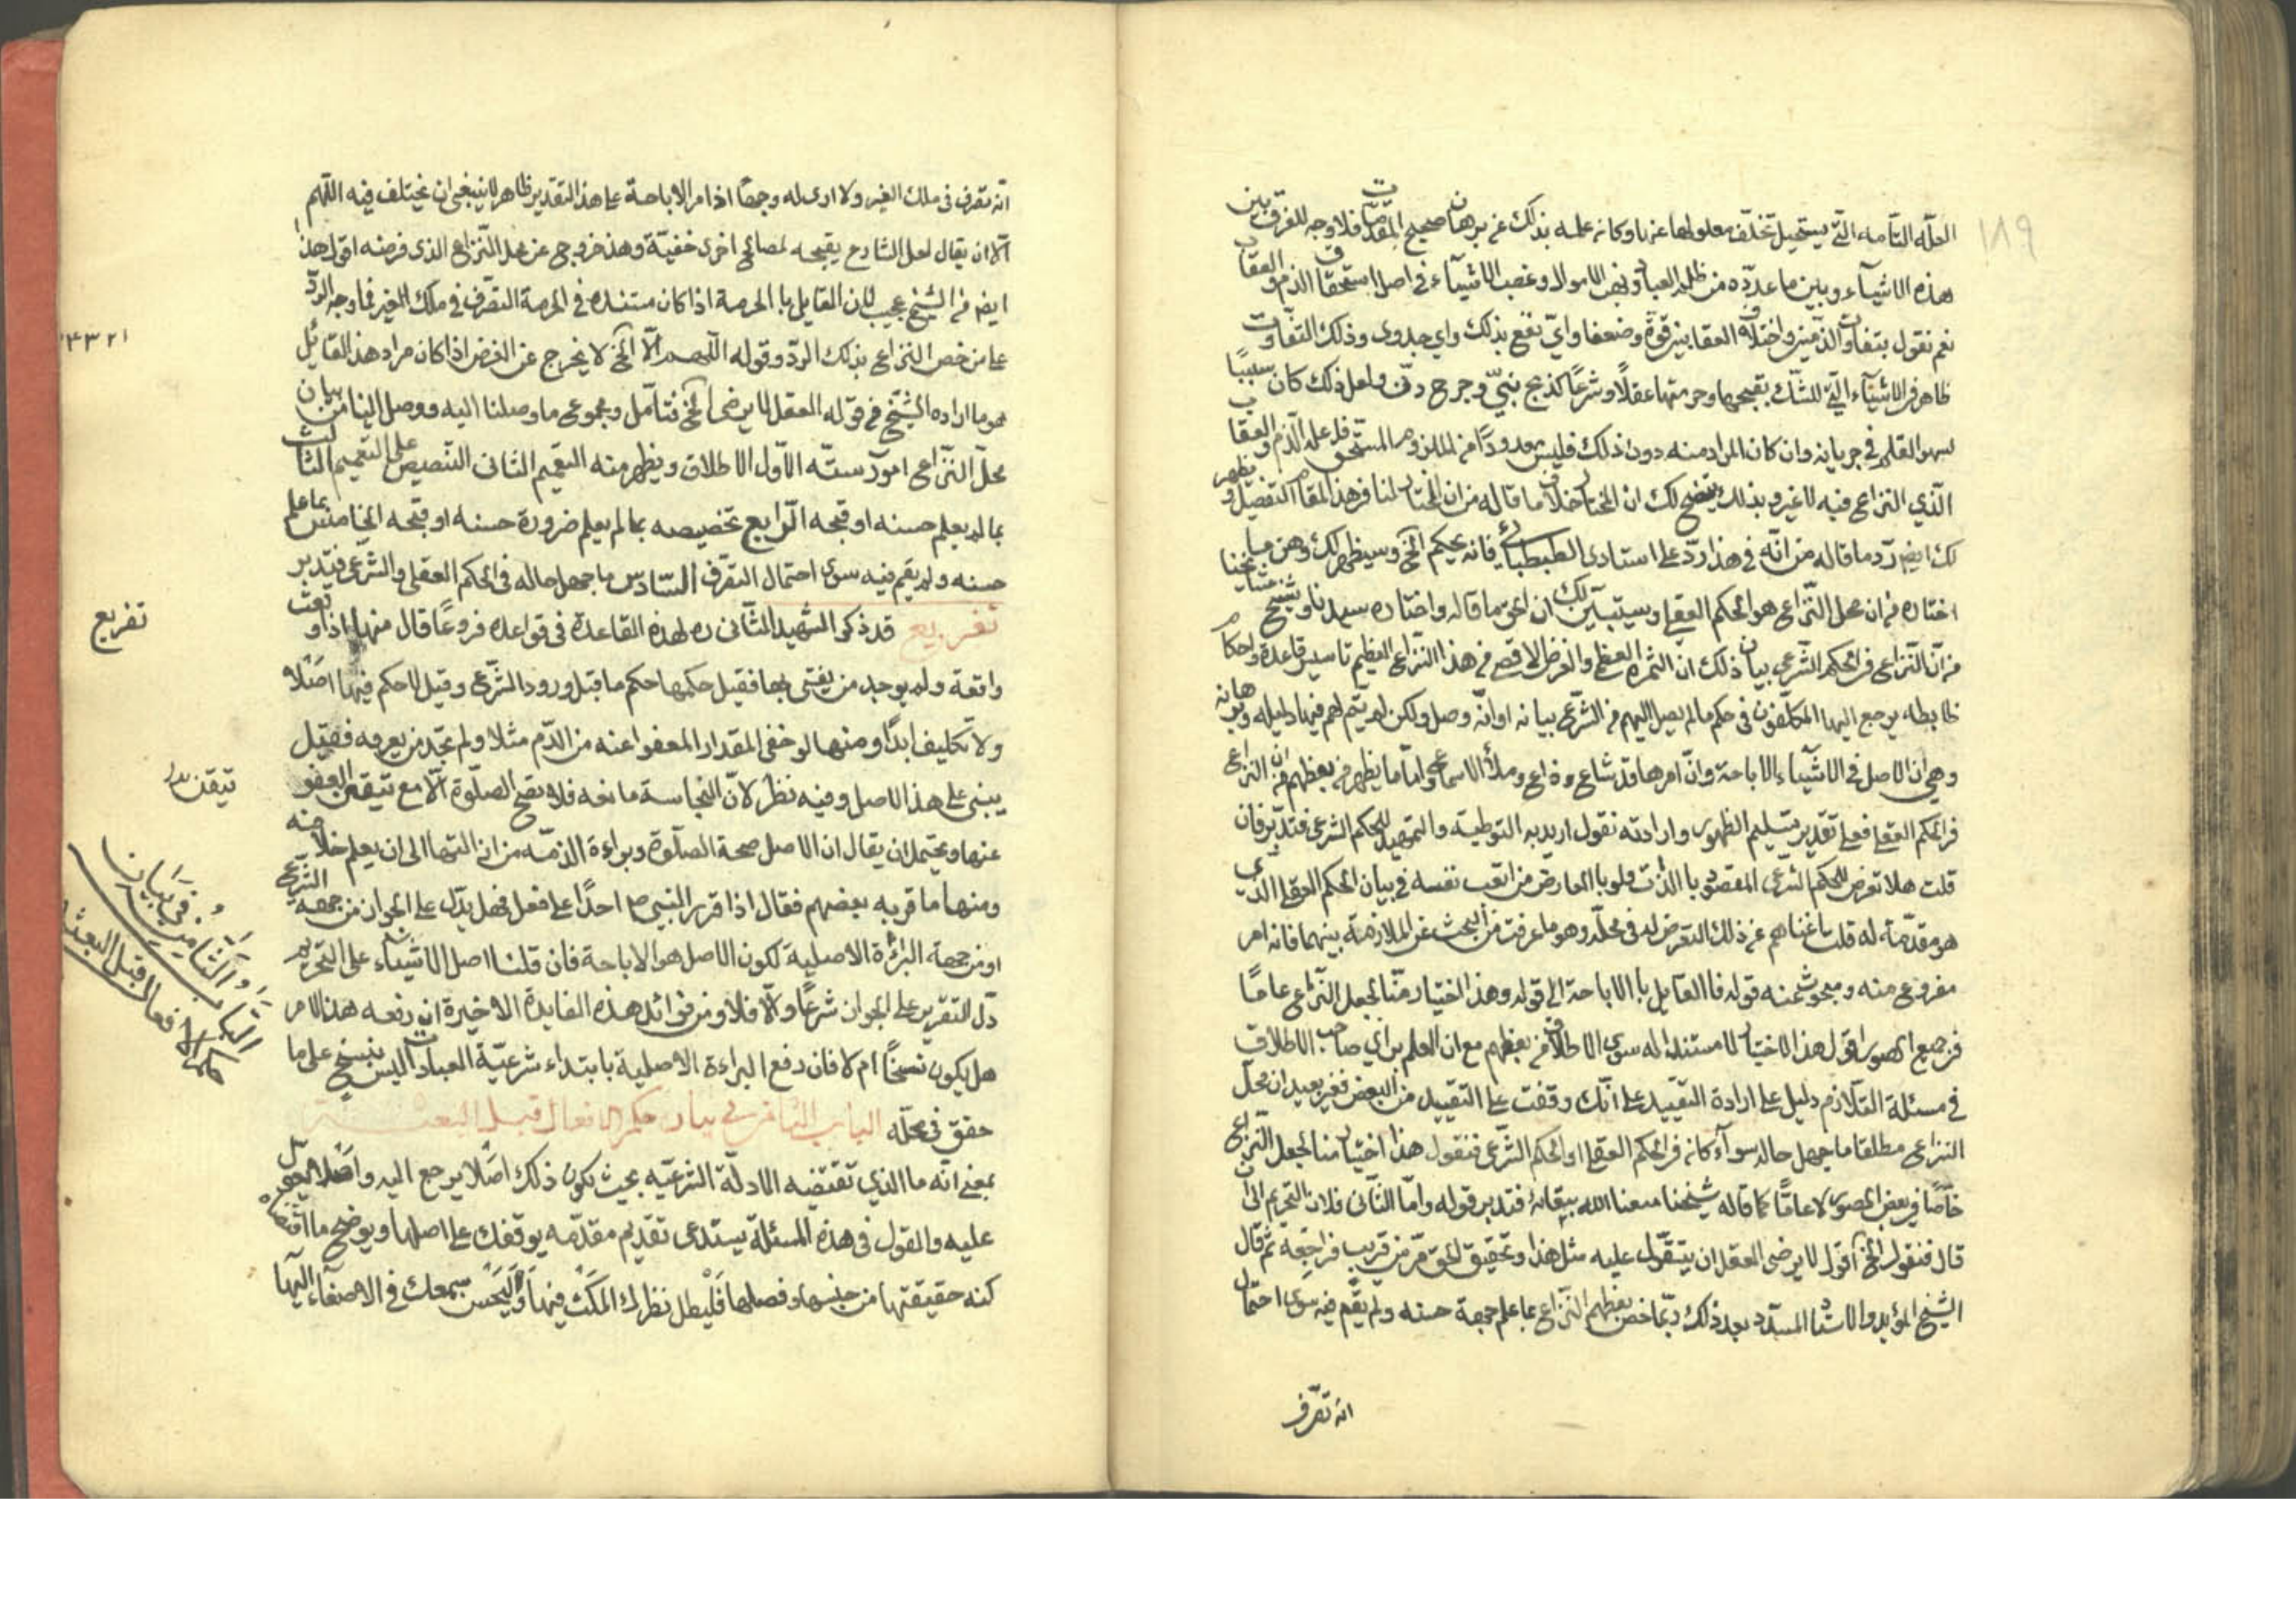 ١٨٩
العلّة التامه التّي يستحيل تخلّف معلولها عنها وكانه علمه بذلك عن برهان صحيح المقدمات فلا وجه للفرق بين
هذه الاشياء وبين ما عدّده من ظلم العباد ونهب الاموال وغصب الاشياء في اصل استحقاق الذم والعقاب
نعم نقول بتفاوت الذمّين واختلاف العقابين قوة وضعفا وايّ نفع بذلك واي جدوى وذلك التفاوت
ظاهر في الاشياء التّي لا شك بقبحها وحرمتها عقلًا وشرعًا كذبح نبيّ وجرح دفّ ولعل ذلك كان سببًا
لسهو القلم في جريانه وان كان المراد منه دون ذلك فليس معدودًا من الملزوم المستحق فاعله الذّم والعقاب
الّذي النزاع فيه لا غير وبذلك يتضح لك ان المختار خلاف ما قاله من ان المختار لنا في هذا المقام التفصيل ويظهر
لك ايضا ردّ ما قاله من انّه في هذا ردّ على استادى الطبطبائي فانه يحكم الخ وسيظهر لك وهن ما
اختاره من ان محل النّزاع هو الحكم العقلي وسيتبين لك ان الحق ما قاله واختاره سيدنا وشيخ مشايخنا
من انّ النّزاع في الحكم الشرعي بيان ذلك انّ الثمرة العظمى والغرض الاقصى في هذا النّزاع العظيم تاسيس قاعدة واحكام
ضابطة يرجع اليها المكلّفون في حكم ما لم يصل اليهم من الشرع بيانه او انّه وصل ولكن لم يتم لهم فيها دليله وبرهانه
وهي ان الاصل في الاشياء الاباحة وانّ امرها قد شاع وذاع وملأ الاسماع وامّا ما يظهر من بعضهم من ان النزاع
في الحكم العقلي فعلى تقدير تسليم الظهور وارادته نقول اريد به التوطية والتمهيد للحكم الشرعي فتدبّر فان
قلت هلا تعرض للحكم الشرعي المقصود بالذّات ولو بالعارض من اتعب نفسه في بيان الحكم العقلي الّذي
هو مقدّمة له قلت اغناهم عن ذلك التعرض له في محلّه وهو ما عرفت من البحث عن الملازمة بينهما فانه امر
مفروغ منه ومبحوث عنه قوله فالقايل بالاباحة الى قوله وهذا اختيار منّا لجعل النّزاع عامّا
في جميع الصور اقول هذا الاختيار لا مستند له سوى الاطلاق من بعضهم مع ان العلم براي صاحب الاطلاق
في مسئلة التلازم دليل على ارادة التّقييد على انّك وقفت على التقييد من البعض فغير بعيد ان محلّ
النزاع مطلقا ما جهل حاله سوآء كان في الحكم العقلي او الحكم الشّرعي فنقول هذا اختيار منا لجعل النّزاع
خاصّا في بعض الصور لا عامّا كما قاله شيخنا متعنا الله ببقائه فتدبر قوله وامّا الثّاني فلان التحريم الى ان
قال فنقول الخ اقول لا يرضى العقل ان يتقوّل عليه مثل هذا وتحقيق الحق مرّ من قريب فراجعه ثم قال
الشيخ المؤيد والاستاد المسدّد بعد ذلك وربّما خص بعضهم النّزاع بما علم جهة حسنه ولم يقم فيه سوى احتمال
انه تصرّف
انّه تصرف في ملك الغير ولا ارى له وجها اذ امر الاباحة على هذا التقدير ظاهر لا ينبغي ان يختلف فيه اللهم
الّا ان يقال لعل الشارع يقبحه لمصالح اخرى خفيّة وهذا خروج عن محل النّزاع الذي فرضه اقول هذا
ايضا من الشيخ عجيب لان القايل بالحرمة اذا كان مستنده في الحرمة التصّرف في ملك الغير فما وجه الردّ
على من خص النزاع بذلك الردّ وقوله اللّهم الّا الخ لا يخرج عن الفرض اذا كان مراد هذا القائل
هو ما اراده الشّيخ في قوله العقل لا يرضى الخ فتأمل ومجموع ما وصلنا اليه ووصل الينا من بيان
محلّ النّزاع امور ستّه الاوّل الاطلاق ويظهر منه التعميم الثاني التنصيص على التعميم الثالث
بما لم يعلم حسنه او قبحه الرّابع تخصيصه بما لم يعلم ضرورة حسنه او قبحه الخامس بما علم
حسنه ولم يقم فيه سوى احتمال التصرف السّادس ما جهل حاله في الحكم العقلي والشّرعي فتدبر
تفريع قد ذكر الشهيد الثّاني ره لهذه القاعدة في قواعده فروعًا قال منها اذا وقعت
واقعة ولم يوجد من يفتى بها فقيل حكمها حكم ما قبل ورود الشّرع وقيل لا حكم فيها اصلًا
ولا تكليف ابدًا ومنها لو خفى المقدار المعفو عنه من الدّم مثلا ولم نجد من يعرفه فقيل
يبنى على هذا الاصل وفيه نظر لانّ النّجاسة مانعه فلا تصح الصلّوة الّا مع تيقّن العفو
عنها ويحتمل ان يقال ان الاصل صحة الصلوة وبراءة الذمّه من ازالتها الى ان يعلم خلافه
ومنها ما فرّبه بعضهم فقال اذا قرر النبي ص احدًا على فعل فهل يدّل على الجواز من جهة الشّرع
او من جهة البرائة الاصلية لكون الاصل هو الاباحة فان قلنا اصل الاشياء على التحريم
دلّ التقرير على الجواز شرعًا والّا فلا ومن فوائد هذه الفايدة الاخيرة ان رفعه هذا الامر
هل يكون نسخًا ام لا فان دفع البراءة الاصلية بابتداء شرعيّة العبادات ليس بنسخ على ما
حقق في محلّه الباب الثامن في بيان حكم الافعال قبل البعثة
بمعنى انّه ما الذي تقتضيه الادلّة الشرعيّه بحيث يكون ذلك اصلًا يرجع اليه
عليه والقول في هذه المسئلة يستدعى تقديم مقدّمه يوقفك على اصلها ويوضح ما اقتضاه
كنه حقيقتها من جنسها وفصلها فليطل نظرك المكث فيها وليحسن سمعك في الاصغاء اليها
تفريع
تيقن
الباب الثّامن في بيان
حكم الافعال قبل البعثة